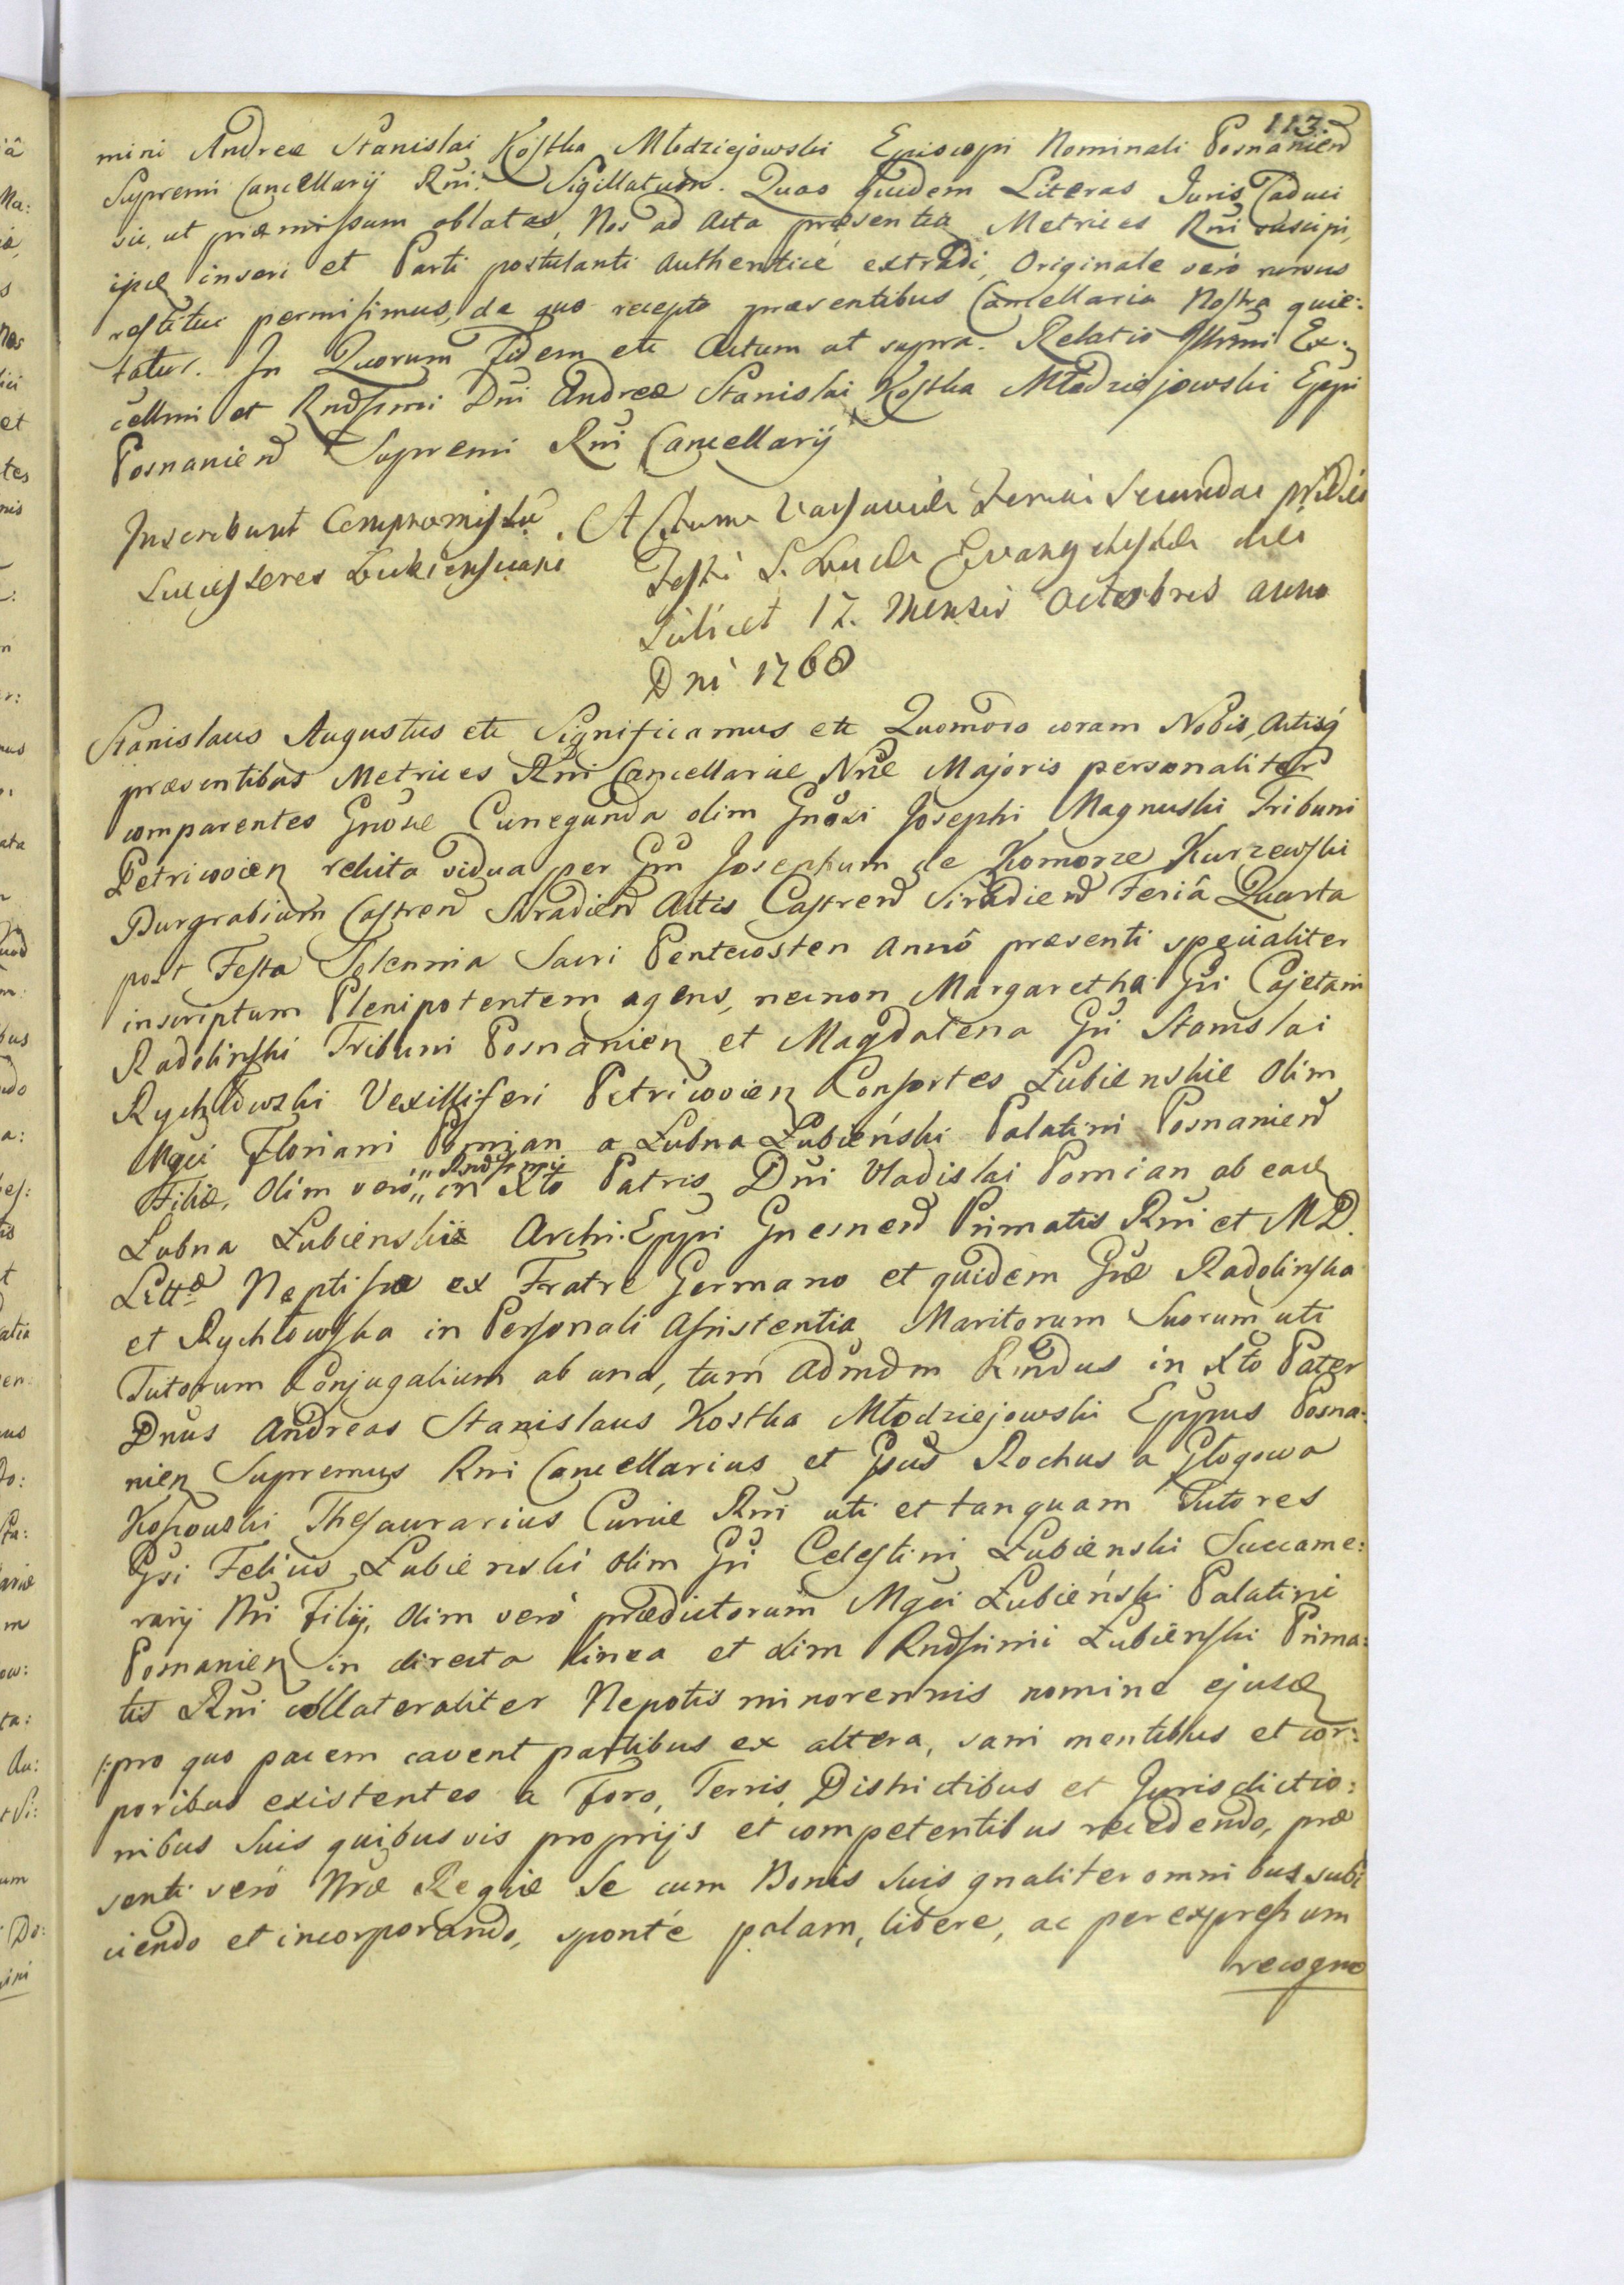 113.
mini Andreæ Stanislai Kostka Młodziejowski Episcopi Nominati Posnanien
Supremi Cancellarij Rni. Sigillatum. Quas quidem Literas Juris Caduci
sic, ut præmissum oblatas, Nos ad Acta præsentia Metrices Rni suscipi,
ijsq inseri et Parti postulanti authenticé extradi, Originale veró rursus
restitui permisimus, de quo recepto præsentibus Cancellaria Nostra quie:
tatur. In Quorum Fidem etc Actum ut supra. Relatio Illrmi Ex:
cellmi et Rndssimi Dni Andreæ Stanislai Kostka Młodziejowski Eppi
Posnanien Supremi Rni Cancellarij
Inscribunt Compromissū
Successores Łubiensciani
Actum Varsaviæ Feria Secunda pridie
Festi S. Lucæ Evangelistæ die
scilicet 17. Mensis Octobris anno
Dni 1768
Stanislaus Augustus etc Significamus etc Quomodo coram Nobis, Actisq
præsentibus Metrices Rni Cancellariæ Nræ Majoris personaliter
comparentes Gnosæ Cunegunda olim Gnosi Josephi Magnuski Tribuni
Petricovien relicta vidua per Gm Josephum de Komorze Kurzewski
Burgrabium Castren Siradien Actis Castren Siradien Feriâ Quarta
post Festa Solennia Sacri Pentecosten Annô præsenti specialiter
inscriptum Plenipotentem agens, necnon Margaretha Gsi Cajetani
Radolinski Tribuni Posnanien et Magdalena Gsi Stanislai
Rychłowski Vexilliferi Petricovien Consortes Łubienskie olim
Mgci Floriani Pomian a Łubna Łubieński Palatini Posnanien
Filiæ, Olim veró „Rndssimi„ in Xto Patris Dni Vladislai Pomian ab eadē
Łubna Łubienskie Archi:Eppi Gnesnen Primatis Rni et M.D.
Litt.æ Neptissæ ex Fratre Germano et quidem Gsæ Radolinska
et Rychłowska in Personali Assistentia Maritorum Suorum uti
Tutorum Conjugalium ab una, tum Admdm Rndus in Xto Pater
Dnus Andreas Stanislaus Kostka Młodziejowski Eppus Posna:
nien Supremus Rni Cancellarius et Gsus Rochus a Głogowa
Kossowski Thesaurarius Curiæ Rni uti et tanquam Tutores
Gsi Felicis Łubienski olim Gsi Celestini Łubienski Succame:
rarij Nri Filij, Olim veró prædictorum Mgci Łubieński Palatini
Posnanien in directa linea et olim Rndssimi Łubienski Prima:
tis Rni collateraliter Nepotis minorennis nomine ejusdē
/:pro quo pacem cavent partibus ex altera, sani mentibus et cor:
poribus existentes a Foro, Terris, Districtibus et Jurisdictio:
nibus Suis quibusvis proprijs et competentibus recedendo, præ
senti veró Nræ Regiæ Se cum Bonis Suis gnaliter omnibus subi
ciendo et incorporando, sponté palam, libere, ac per expressum
recogno